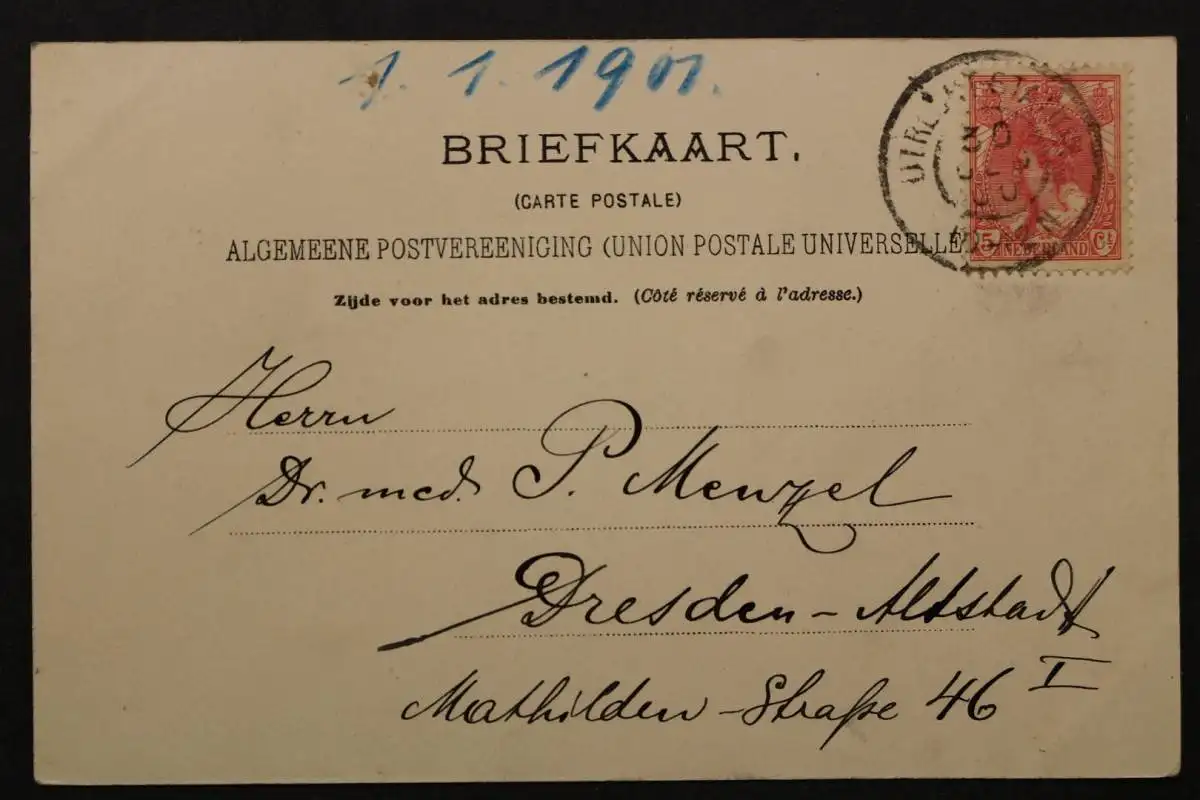 1. 1. 1901.
BRIEFKAART.
(CARTE POSTALE)
ALGEMEENE POSTVEREENIGING (UNION POSTALE UNIVERSELLE
Zijde voor het adres bestemd. (Côté réservé à l'adresse.)
5 NEDERLAND Ct
Herrn
Dr. med. P. Menzel
Dresden-Altstadt
Mathilden-Straße 46 I